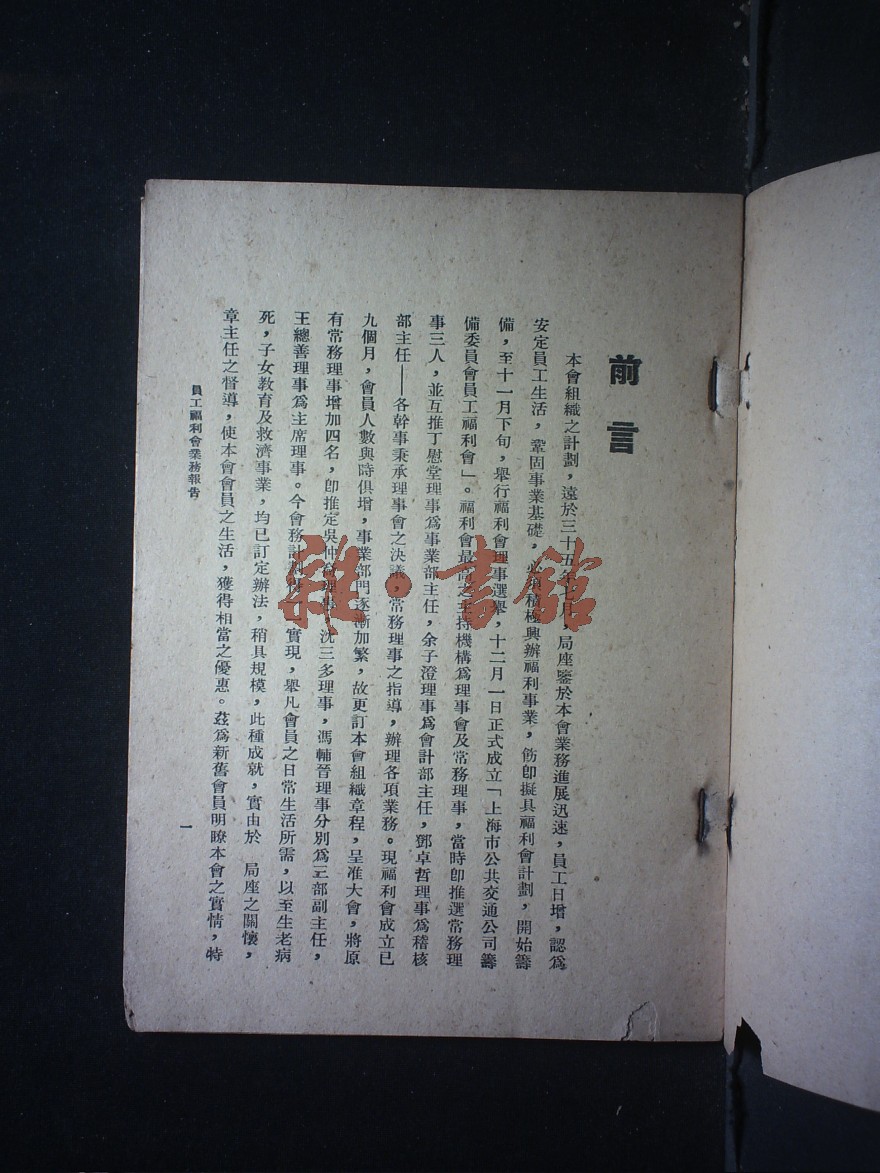 前言
本會組織之計劃，遠於三十五年七月，局座鑒於本會業務進展迅速，員工日增，認爲
安定員工生活，鞏固事業基礎，必須積極興辦福利事業，飭卽擬具福利會計劃，開始籌
備，至十一月下旬，舉行福利會理事選舉，十二月一日正式成立「上海市公共交通公司籌
備委員會員工福利會」。福利會最高之主持機構爲理事會及常務理事，當時卽推選常務理
事三人，並互推丁慰堂理事爲事業部主任，余子澄理事爲會計部主任，鄧卓哲理事爲稽核
部主任——各幹事秉承理事會之決議，常務理事之指導，辦理各項業務。現福利會成立已
九個月，會員人數與時俱增，事業部門逐漸加繁，故更訂本會組織章程，呈准大會，將原
有常務理事增加四名，卽推定吳仲 理事，沈三多理事，馮輔晉理事分別爲三部副主任，
王總善理事爲主席理事。今會務計劃 實現，舉凡會員之日常生活所需，以至生老病
死，子女教育及救濟事業，均已訂定辦法，稍具規模，此種成就，實由於 局座之關懷，
章主任之督導，使本會會員之生活，獲得相當之優惠。茲爲新舊會員明瞭本會之實情，特
員工福利會業務報告
一
雜·書館